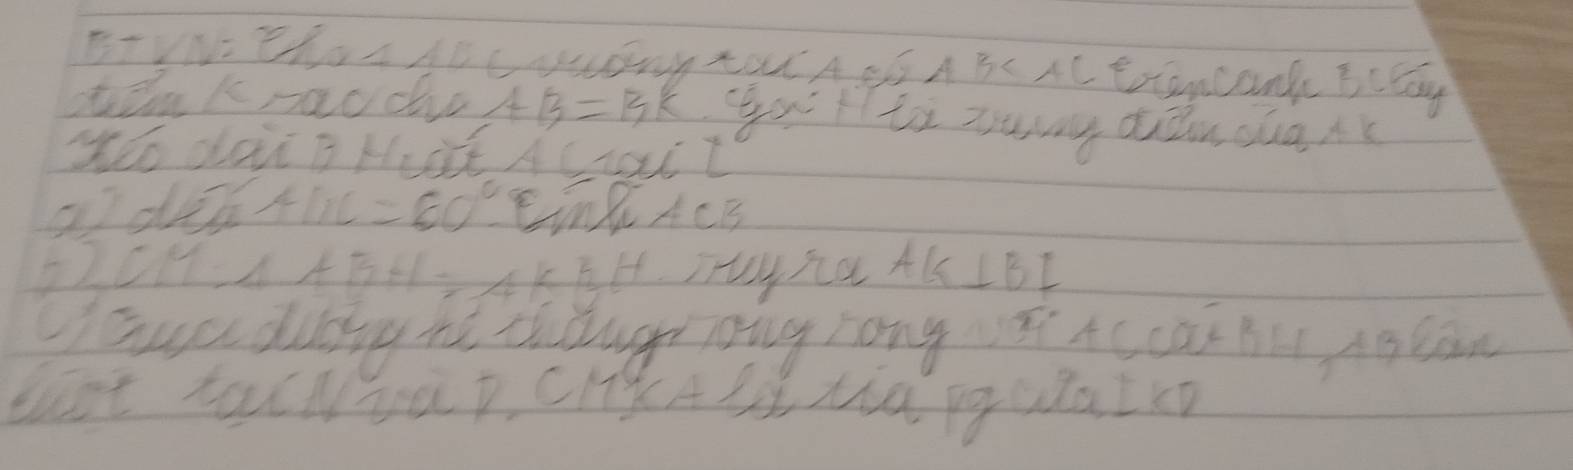 BTVN: Cho Δ ABC vuông tại A có AB < AC trên cạnh BC lấy
điểm K sao cho AB = BK. Gọi H là trung điểm của AK
kéo dài BH cắt AC tại I
a) nếu ABC = 60° tính ACB
b) CM Δ ABH = Δ KBH. suy ra AK ⊥ BI
c) qua đường kẻ thẳng song song với AC cắt BH, AB lần
lượt tại N và D. CM KA là tia pg của IKD